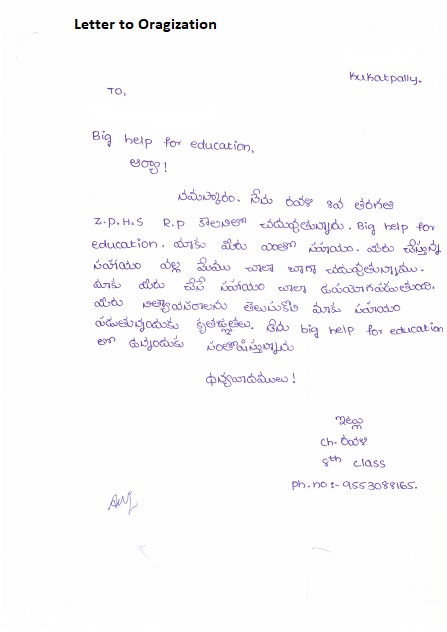 Letter to Oragization
Kukatpally.
TO,
Big help for education,
ఆర్యా!
నమస్కారం. నేను రవళి 8వ తరగతి
Z.P.H.S R.P కాలనిలో చదువుతున్నాను. Big help for
education. మాకు మీరు ఎంతో సహాయం. మీరు చేస్తున్న
సహాయం వల్ల మేము చాలా బాగా చదువుతున్నాము.
మాకు మీరు చేసే సహాయం చాలా ఉపయోగపడుతుంది.
మీరు నిత్యావసరాలను తెలుసుకొని మాకు సహాయం
పడుతున్నందుకు కృతజ్ఞతలు. నేను big help for education
లో ఉన్నందుకు సంతోషిస్తున్నాను
ధన్యవాదములు!
ఇట్లు
ch. రవళి
8th class
Ph.no:- 9553088165.